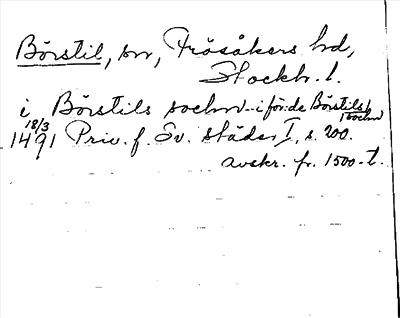 Börstil, sn, Frösåkers hd,
Stockh. l.
i Börstils sochn - i för:de Börstils
sochn
18/3
1491 Priv. f. Sv. städer I, s. 200.
avskr. fr. 1500-t.